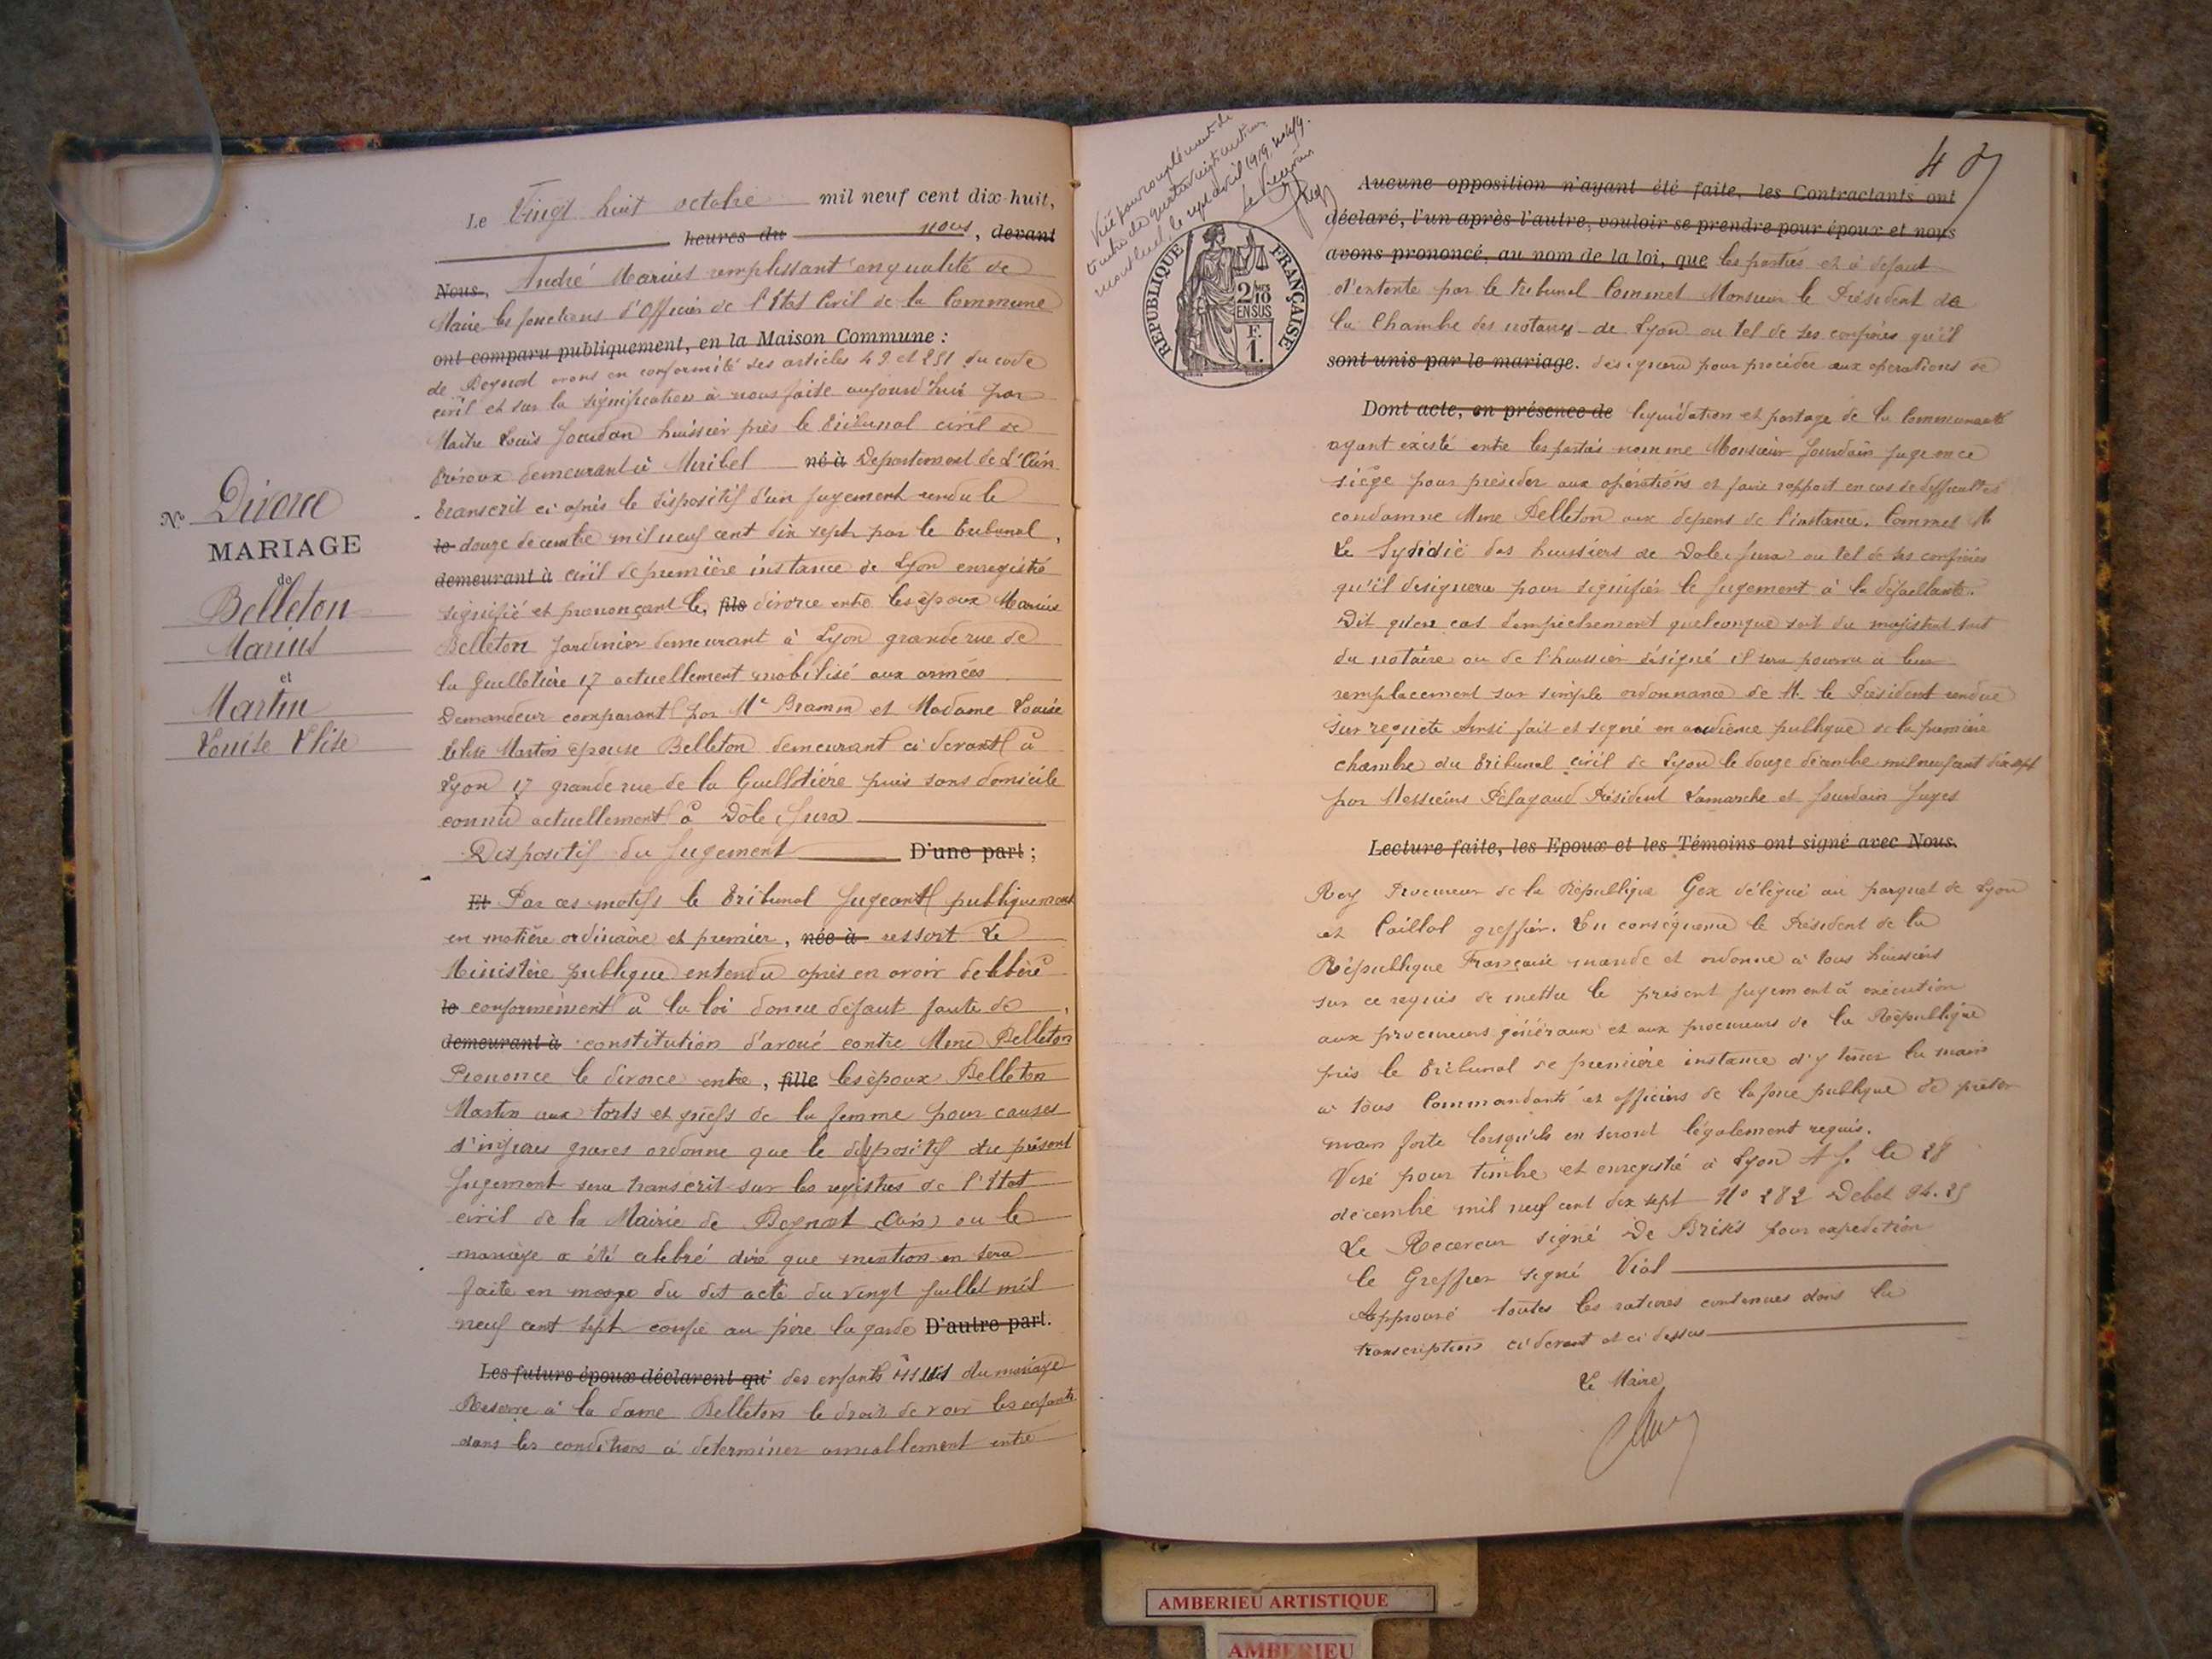 Nº Divorce
MARIAGE
de
Belleton
Marius
et
Martin
Louise Elise
Le Vingt huit octobre mil neuf cent dix-huit,
heures du nous, devant
Nous, André Marius remplissant en qualité de
Maire les fonctions d'Officier de l'Etat Civil de la Commune
ont comparu publiquement, en la Maison Commune :
de Beynost avons en conformité des articles 49 et 251 du code
civil et sur la signification à nous faite aujourd'hui par
Maître Louis Jourdan huissier près le Tribunal civil de
Trévoux demeurant à Miribel né à Departement de L'Ain
transcrit ci après le dispositif d'un jugement rendu le
le douze decembre mil neuf cent dix sept par le tribunal,
demeurant à civil de première instance de Lyon enregistré
signifié et prononçant le, fils divorce entre les époux Marius
Belleton Jardinier demeurant à Lyon grande rue de
la Guillotière 17 actuellement mobilisé aux armées
Demandeur comparant par Me Gramm et Madame Louise
Elise Martin épouse Belleton demeurant ci devant à
Lyon 17 grande rue de la Guillotière puis sans domicile
connu actuellement à Dôle Jura
Dispositif du Jugement D'une part ;
Et Par ces motifs le Tribunal Jugeant publiquement
en matière ordinaire et premier, née à ressort Le
Ministère publique entendu après en avoir delibéré
le conformément à la loi donne défaut faute de,
demeurant à constitution d'avoué contre Mme Belleton
Prononce le divorce entre, fille les époux Belleton
Martin aux torts et griefs de la femme pour causes
d'injures graves ordonne que le dispositif du présent
Jugement sera transcrit sur les registres de l'Etat
civil de la Mairie de Beynost (Ain) ou le
mariage a été celebré dire que mention en sera
faite en marge du dit acte du vingt Juillet mil
neuf cent sept confie au père la garde D'autre part.
Les futurs époux déclarent qu' des enfants issus du mariage
Réserve à la dame Belleton le droit de voir les enfants
dans les conditions à déterminer amiablement entre
Visé pour supplément de
timbre de quatre vingt centimes
Montluel le sept avril 1919
REPUBLIQUE FRANÇAISE
2/10
EN SUS
F.
1.
Aucune opposition n'ayant été faite, les Contractants ont
déclaré, l'un après l'autre, vouloir se prendre pour époux et nous
avons prononcé, au nom de la loi, que les parties et à defaut
d'entente par le tribunal Commet Monsieur le Président de
la Chambre des notaires de Lyon ou tel de ses confrères qu'il
sont unis par le mariage. designera pour procéder aux operations de
Dont acte, en présence de liquidation et partage de la Communauté
ayant existé entre les parties nomme Monsieur Jourdain Juge en ce
siège pour présider aux opérations et faire rapport en cas de difficultés
condamne Mme Belleton aux depens de l'instance. Commet M
Le Syndic des huissiers de Dole Jura ou tel de ses confrères
qu'il designera pour signifier le Jugement à la défaillante.
Dit qu'en cas d'empêchement quelconque soit du magistrat soit
du notaire ou de l'huissier désigné il sera pourvu à leur
remplacement sur simple ordonnance de M. le Président rendue
sur requête Ainsi fait et signé en audience publique de la première
chambre du Tribunal civil de Lyon le douze décembre mil neuf cent dix sept
par Messieurs Pélagaud Président Lamarche et Jourdain Juges
Lecture faite, les Epoux et les Témoins ont signé avec Nous.
Rey Procureur de la République Gex délégué au parquet de Lyon
et Caillol greffier. En conséquence le Président de la
République Française mande et ordonne à tous huissiers
sur ce requis de mettre le présent Jugement à exécution
aux procureurs généraux et aux procureurs de la République
près le Tribunal de première instance d'y tenir la main
à tous Commandants et officiers de la force publique de prêter
main forte lorsqu'ils en seront légalement requis.
Visé pour timbre et enregistré à Lyon A J. le 28
decembre mil neuf cent dix sept Nº 282 Debet 94.25
Le Receveur signé De Briks pour expedition
le Greffier signé Vial
Approuvé toutes les ratures contenues dans la
transcription ci devant et ci dessus
Le Maire
AMBERIEU ARTISTIQUE
AMBERIEU